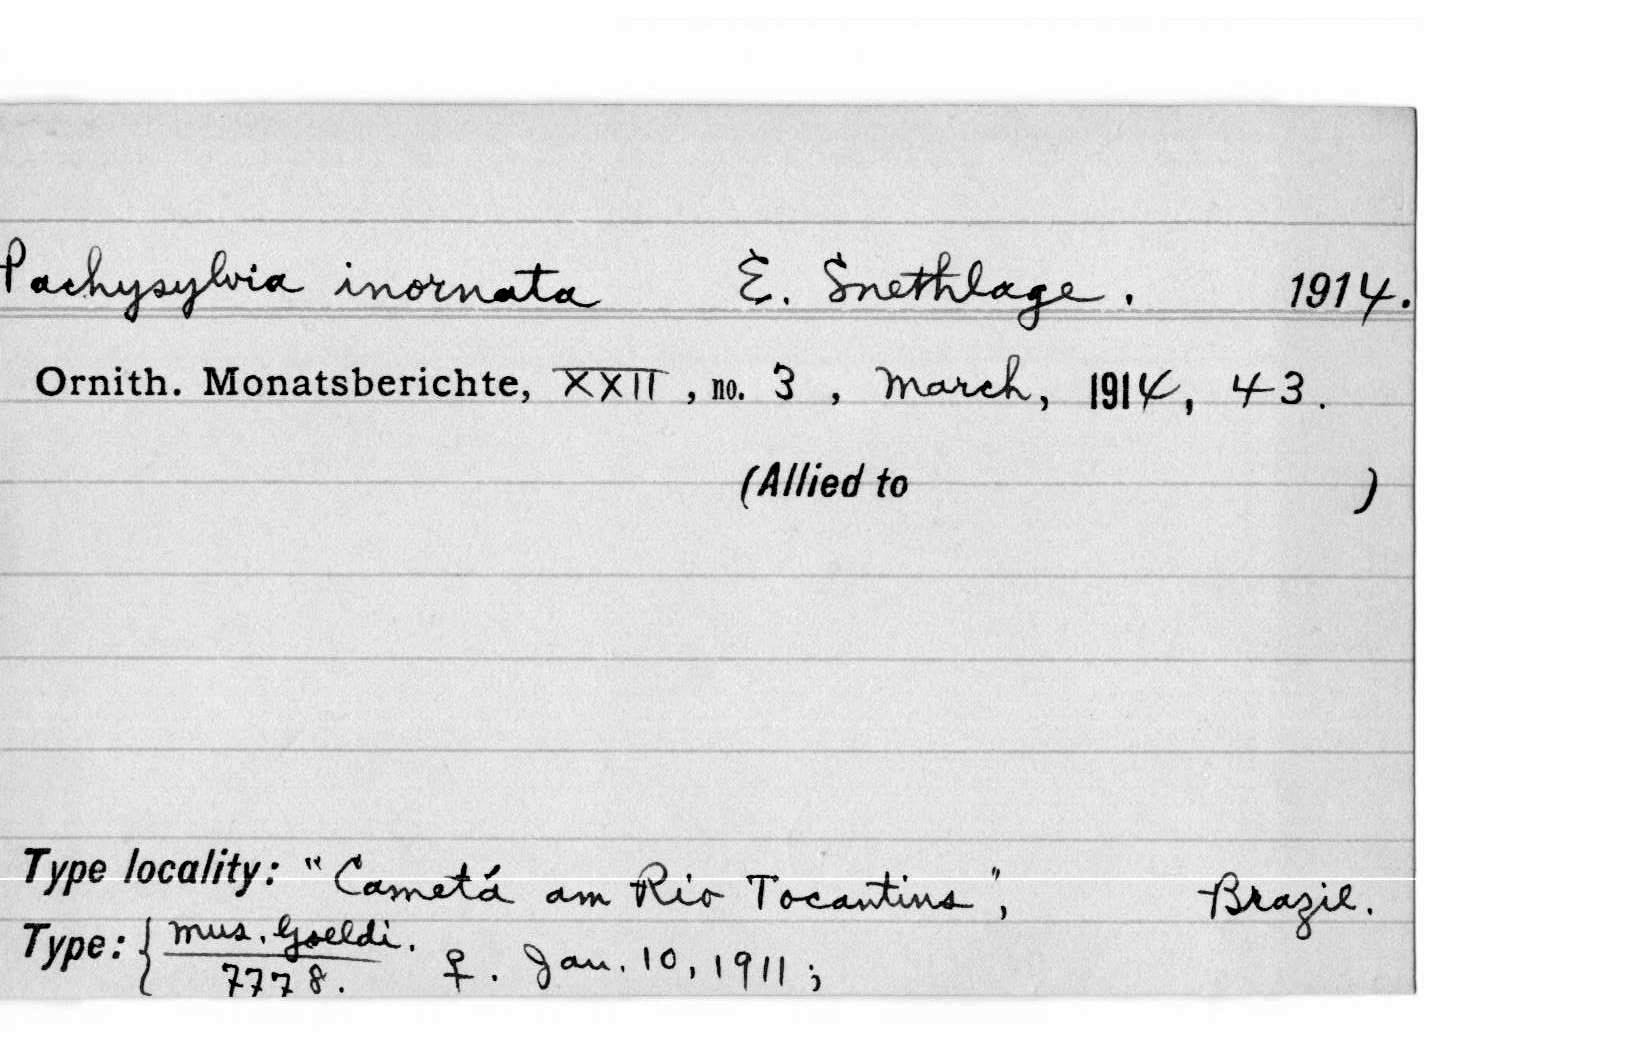 Pachysylvia inornata E. Snethlage. 1914.
Ornith. Monatsberichte, XXII, no. 3, March, 1914, 43.
(Allied to )
Type locality: "Cametá am Rio Tocantins", Brazil.
Type: { Mus. Goeldi.
7778. ♀. Jan. 10, 1911;